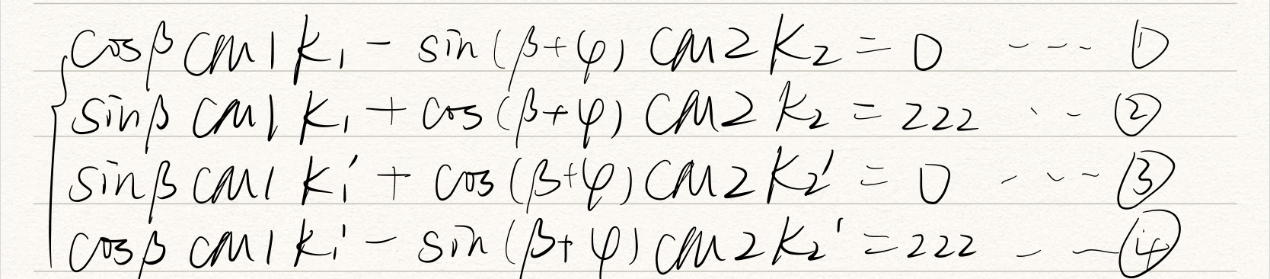 cosβ CM1 K₁ − sin(β+φ) CM2 K₂ = 0 --- ①
sinβ CM1 K₁ + cos(β+φ) CM2 K₂ = 222 --- ②
sinβ CM1 K₁' + cos(β+φ) CM2 K₂' = 0 --- ③
cosβ CM1 K₁' − sin(β+φ) CM2 K₂' = 222 --- ④